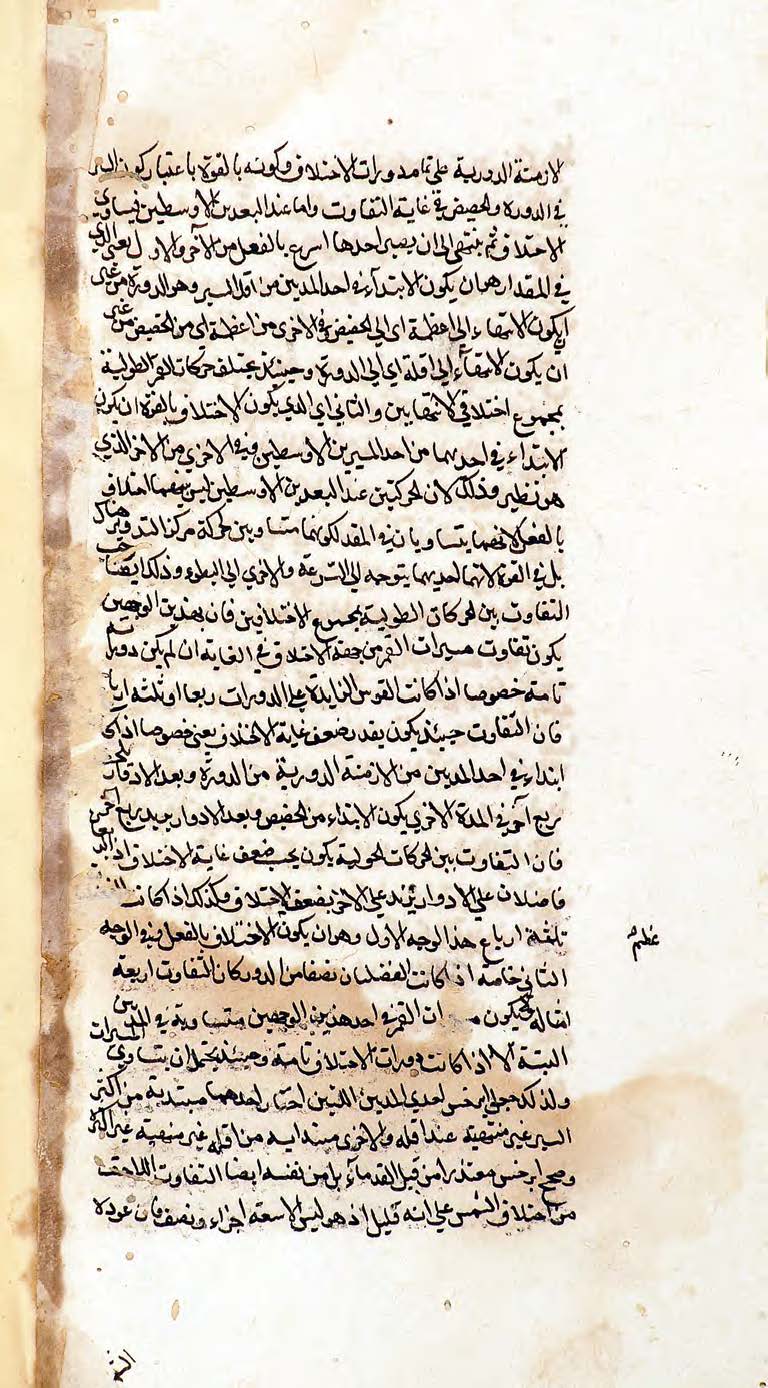 لازمنة الدورية على تمام دورات الاختلاف وكونه بالقوة باعتبار كون
في الدورة والحضيض في غاية التفاوت واما عند البعدين الاوسطين فيساوي
الاختلاف ثم ينتهي الى ان يصير احدها اسرع بالفعل من الآخر والاول يعني الذي
في المقدار هو ان يكون الابتداء في احد المدتين من اقل المسير وهو الدورة من غير
ان يكون الانتهاء الى اعظمة اي الى الحضيض وفي الاخرى من اعظمة اي من الحضيض من غير
ان يكون الانتهاء الى اقلة اي الى الدورة وحينئذ يختلف حركات القمر الطولية
بمجموع اختلافي الانتهايين والثاني اي الذي يكون الاختلاف بالقوة ان يكون
الابتداء في احديهما من احد المسيرين الاوسطين وفي الاخرى من الاخر الذي
هو نظيره وذلك لان الحركتين عند البعدين الاوسطين ليس بينهما اختلاف
بالفعل لانهما يتساويان في المقدار لكونهما متساويين لحركة مركز التدوير هناك
بل في القوة لانهما احديهما يتوجه الى السرعة والاخرى الى البطوء وذلك ايضا
التفاوت بين الحركات الطولية بمجموع الاختلافين فان بهذين الوجهين
يكون تفاوت مسيرات القمر من جهة الاختلاف في الغاية ان لم يكن دورات
تامة خصوصا اذا كانت القوس الزايدة على الدورات ربعا او ثلثة ارباع
فان التفاوت حينئذ يكون بقدر ضعف غاية الاختلاف يعني خصوصا اذا كان
ابتداء في احد المدتين من الازمنة الدورية من الدورة وبعد الادوار
ربع آخر في المدة الاخرى يكون الابتداء من الحضيض وبعد الادوار يريد ربع آخر
فان التفاوت بين الحركات الطولية يكون بحسب ضعف غاية الاختلاف اذ
فاضلان على الادوار يزيد على الاخر بضعف الاختلاف وكذلك اذا كانت
ثلثة ارباع هذا الوجه الاول وهو ان يكون الاختلاف بالفعل وفي الوجه
الثاني خاصة اذا كانت الفضلتان نصفا من الدور كان التفاوت اربعة
امثاله فيكون ان القمر في احد هذين الوجهين متساوية في المدتين
البتة الا اذا كانت دورات الاختلاف تامة وحينئذ يحتمل ان يتساوى المسيرات
ولذلك جعل ابرخس احدى المدتين اللتين اختار احدهما مبتدية من اكثر
السير غير منتهية عند اقله والاخرى مبتداية من اقله غير منتهية عند اكثره
وصحح ابرخس معتذرا من قبل القدماء بل من نفسه ايضا التفاوت اللاحقة
من اختلاف الشمس على انه قليل اذ هو ليس الا سبعة اجزاء ونصف فان عودة
عظيم